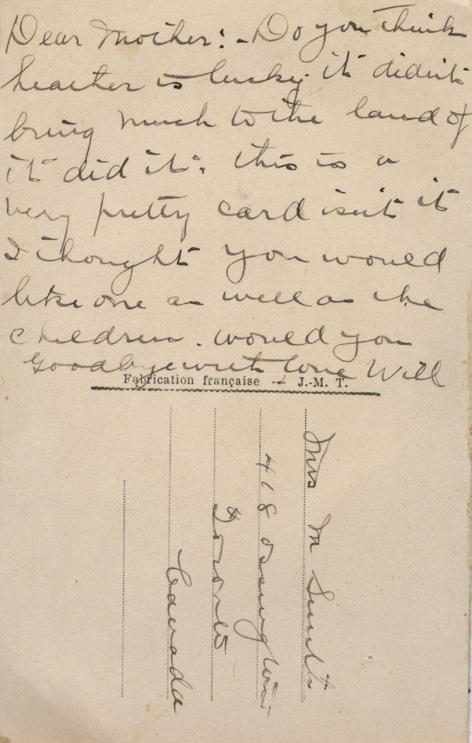 Dear Mother:- Do you think
heather is lucky. it didn't
bring much to the land of
it did it. this is a
very pretty card isn't it
I thought you would
like one as well as the
children. would you
Goodbye with love Will
Fabrication française -- J.-M. T.
Mrs M Smith
418 Ossington
Toronto
Canada